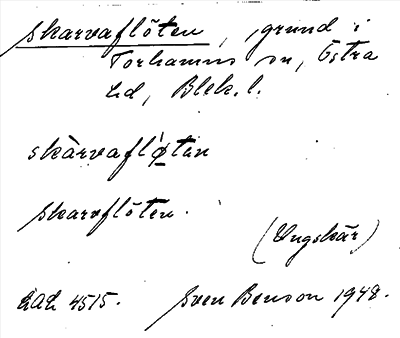 Skarvaflöten, grund i
Torhamns sn, Östra
hd, Blek. l.
skàrvafl'ǿtan
Skarvflöten.
(Ungskär)
LAL 4515. Sven Benson 1948.